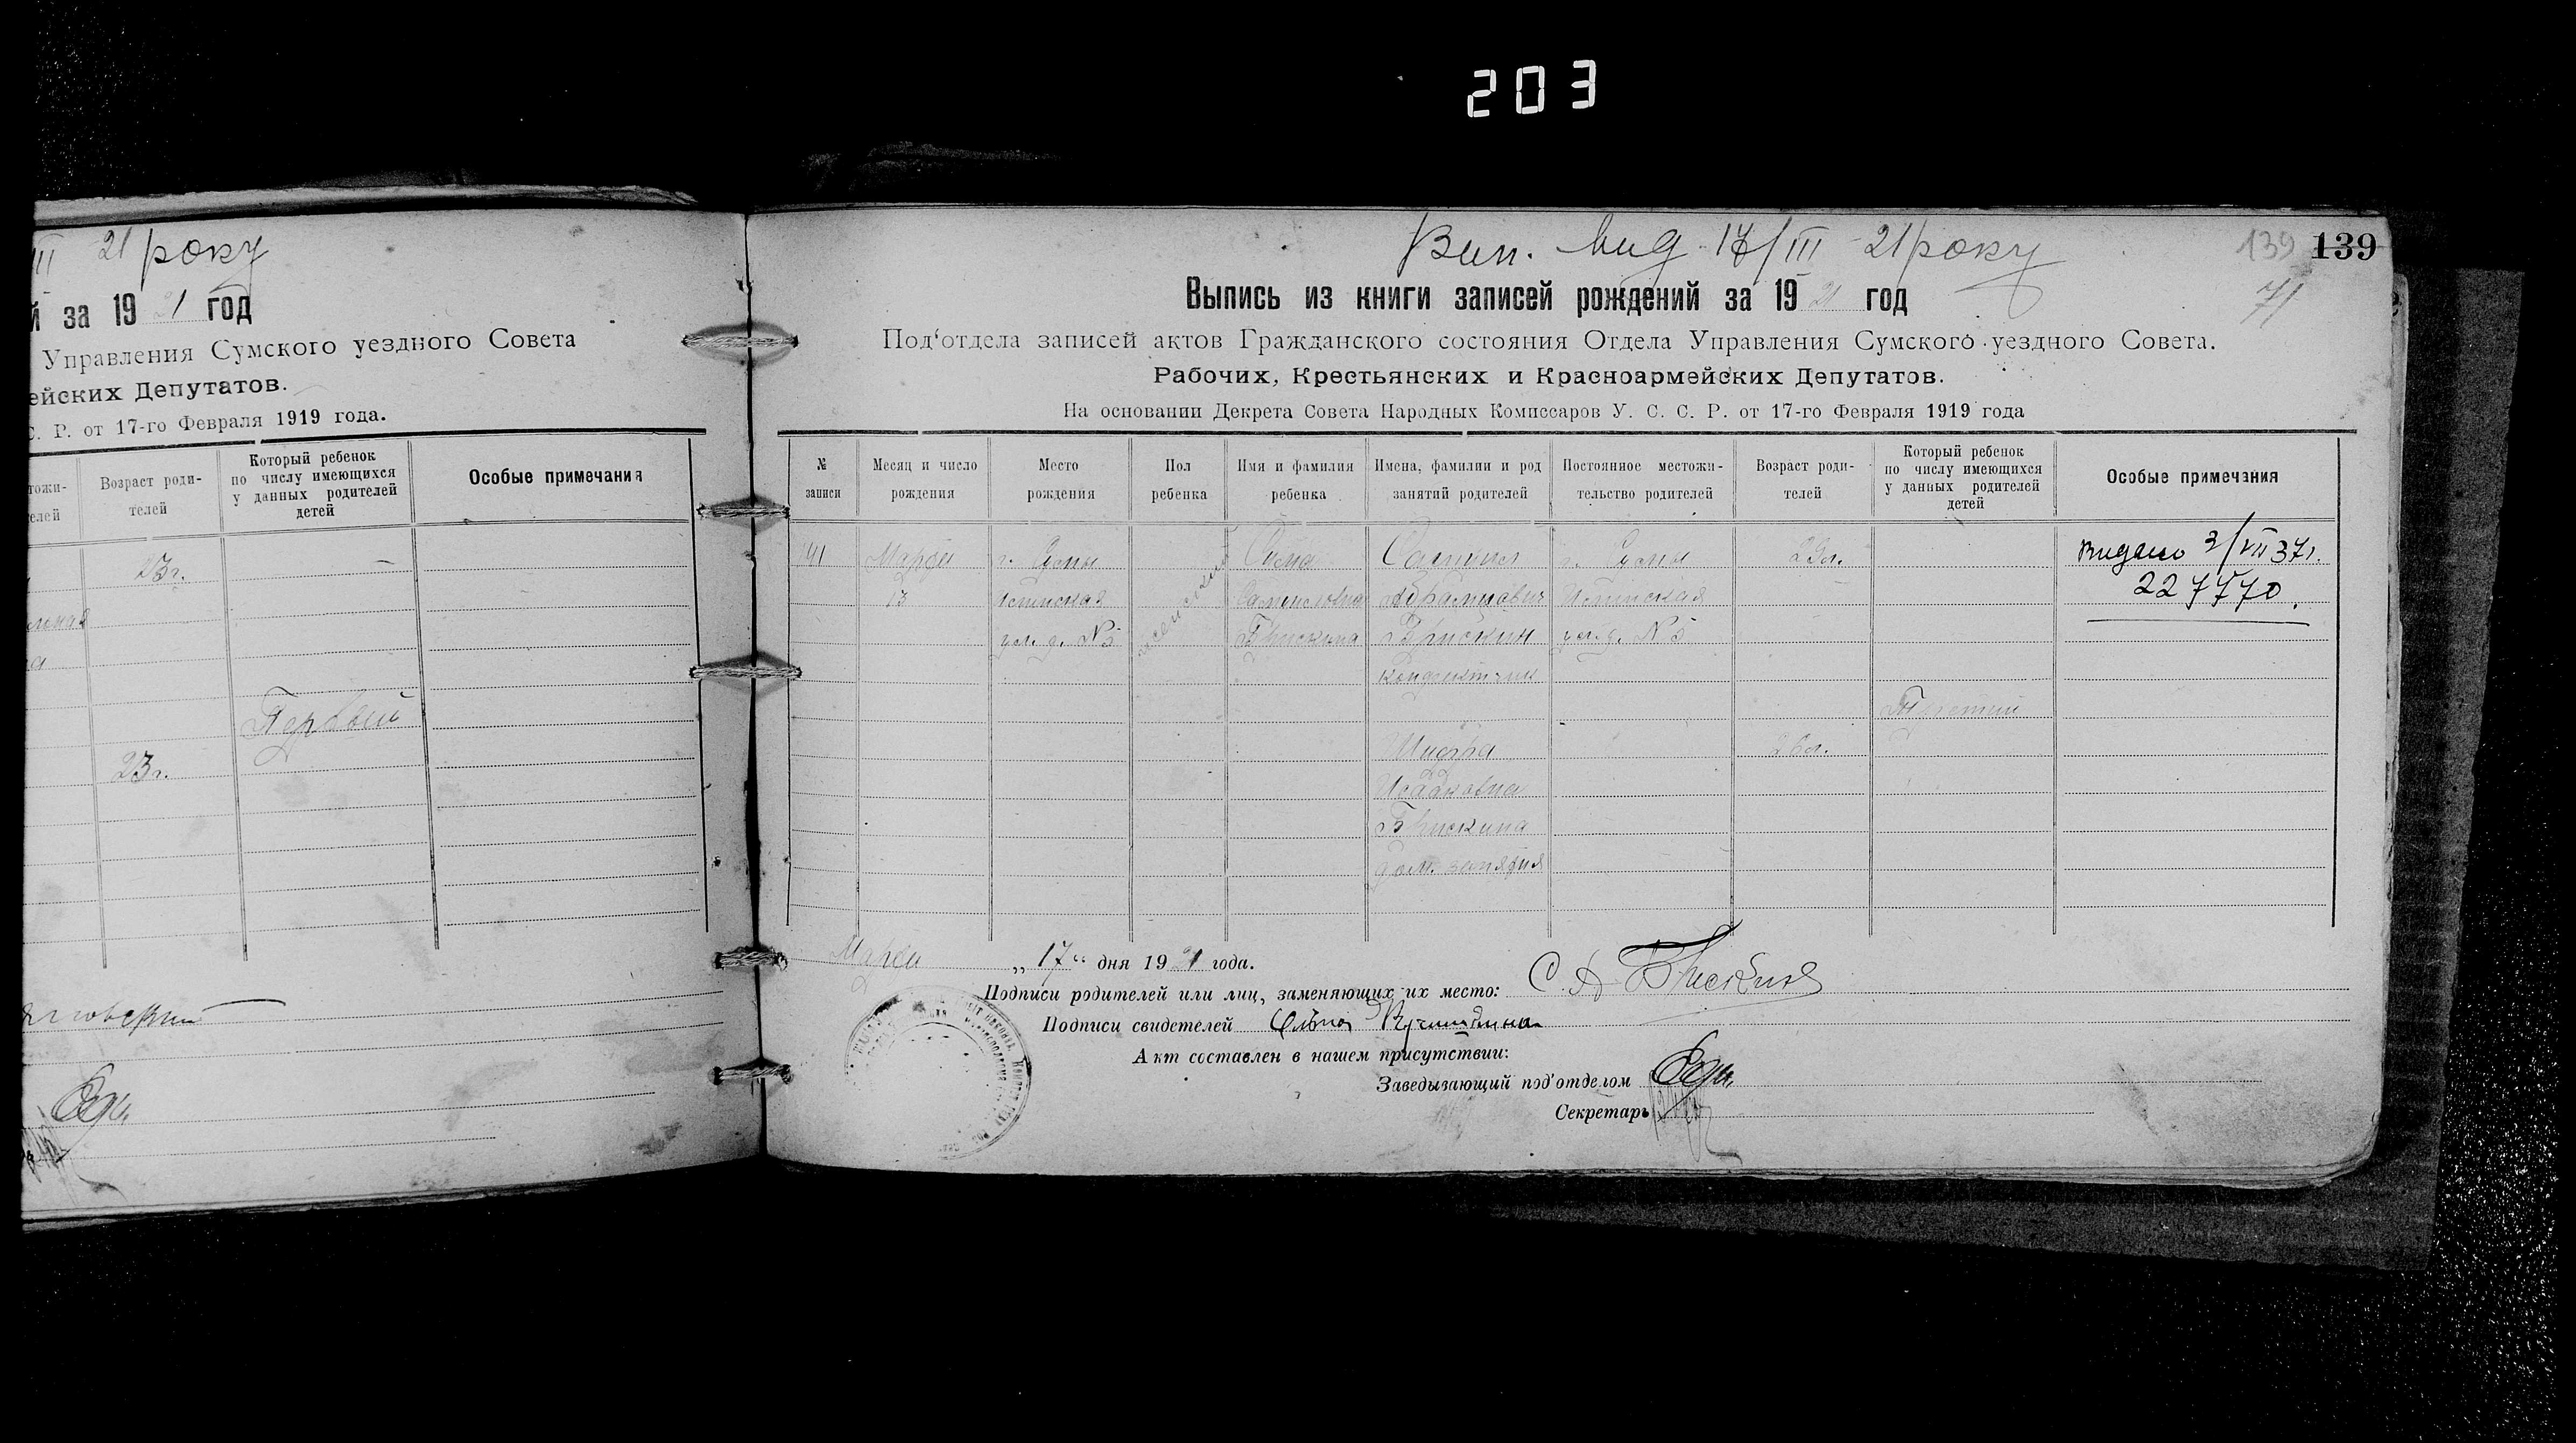 203
III 21 року
й за 19 21 год
Управления Сумского уездного Совета
ейских Депутатов.
С. Р. от 17-го Февраля 1919 года.
тожи-
телей
Возраст роди-
телей
Который ребенок
по числу имеющихся
у данных родителей
детей
Особые примечания
23 г.
—
Первый
23 г.
Вип. вид 17/III 21 року
139 139
71
Выпись из книги записей рождений за 19 21 год
Под'отдела записей актов Гражданского состояния Отдела Управления Сумского уездного Совета.
Рабочих, Крестьянских и Красноармейских Депутатов.
На основании Декрета Совета Народных Комиссаров У. С. С. Р. от 17-го Февраля 1919 года
№
записи
Месяц и число
рождения
Место
рождения
Пол
ребенка
Имя и фамилия
ребенка
Имена, фамилии и род
занятий родителей
Постоянное местожи-
тельство родителей
Возраст роди-
телей
Который ребенок
по числу имеющихся
у данных родителей
детей
Особые примечания
Марта
13
г. Сумы
ул. д. № 5
женский
Сима
Самуиловна
Брискина
Самуил
Абрамович
Брискин
Шифра
Исааковна
Брискина
дом. занятия
г. Сумы
ул. д. № 5
29 л.
26 л.
Третий
Видано 3/VII 37 г.
227770.
Марта „17“ дня 19 21 года.
Подписи родителей или лиц, заменяющих их место: С. А. Брискин
Подписи свидетелей
Акт составлен в нашем присутствии:
Заведывающий под'отделом
Секретарь